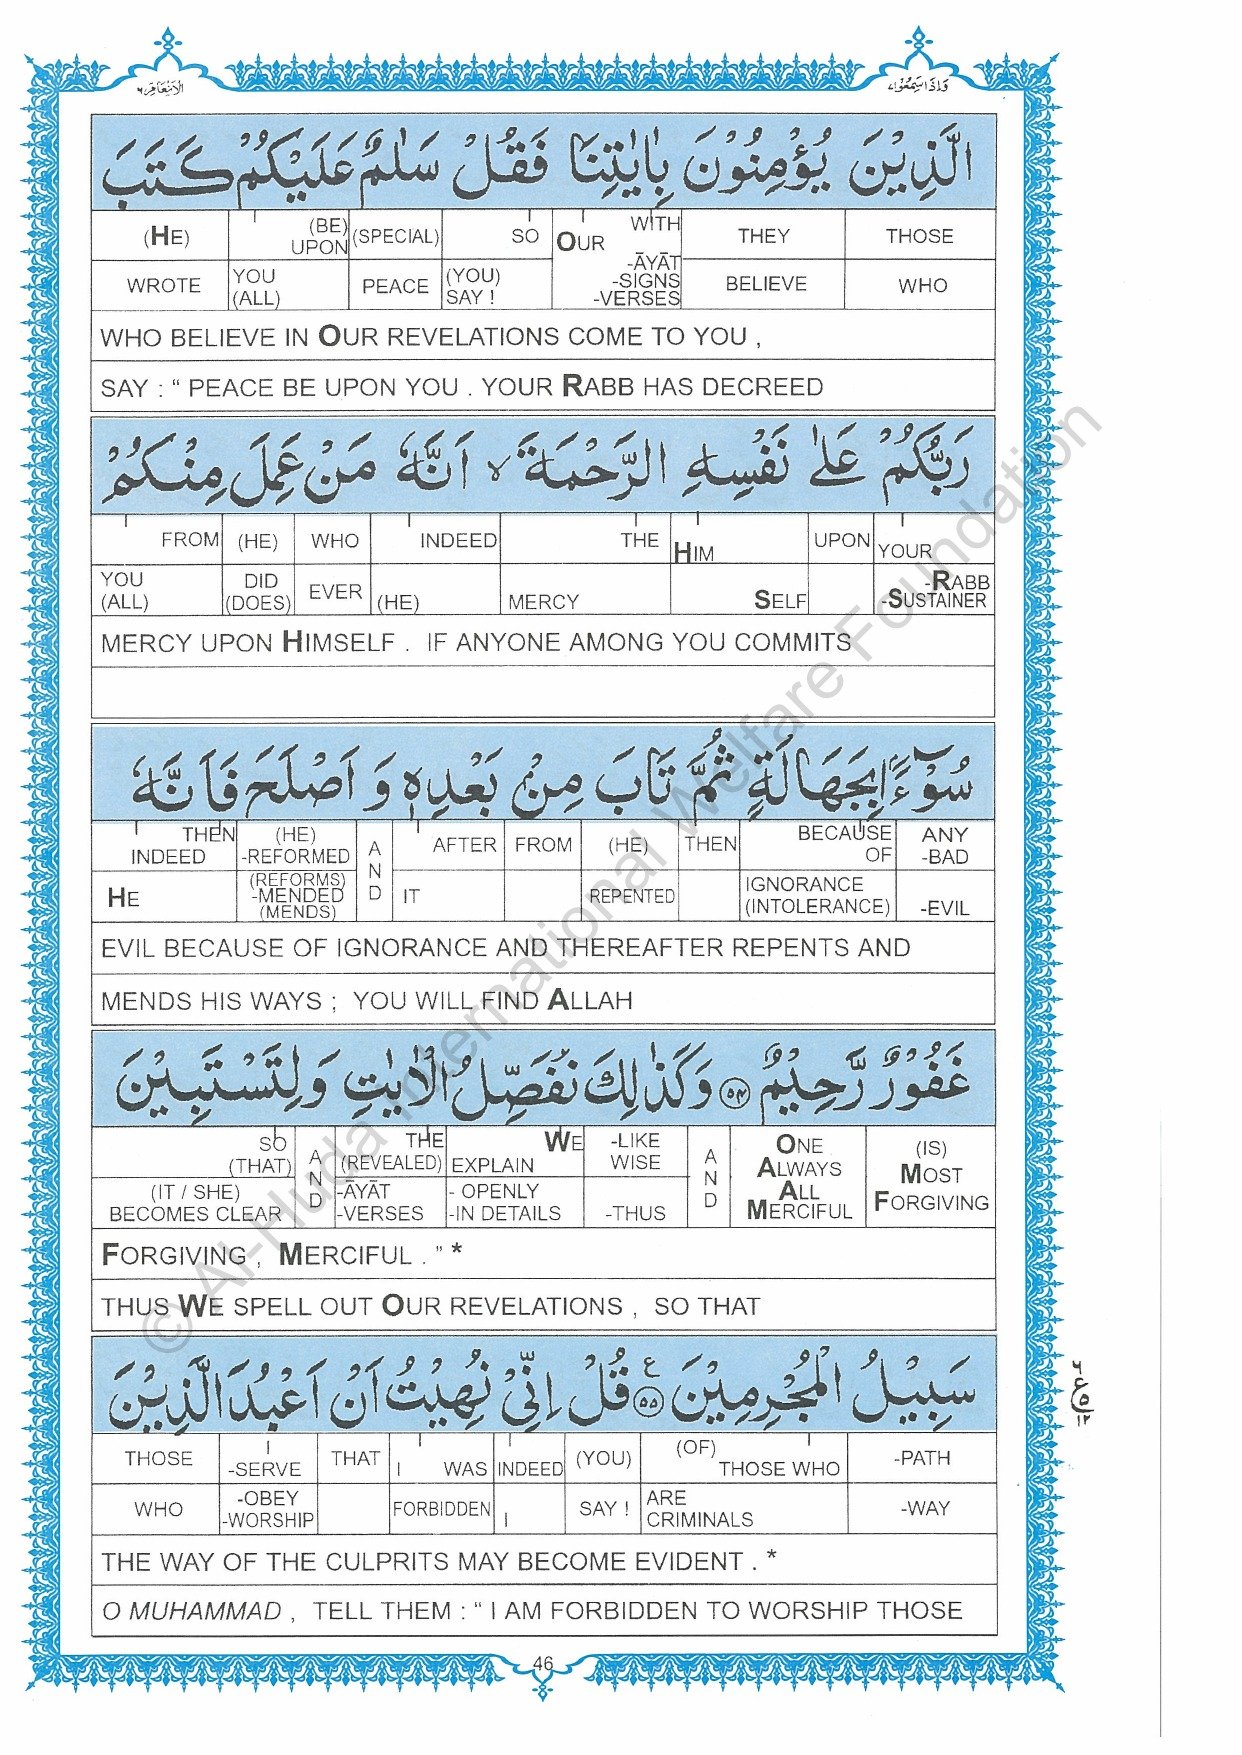 وَاِذَا سَمِعُوْا ٧
الْاَنْعَام ٦
الَّذِيْنَ يُؤْمِنُوْنَ بِاٰيٰتِنَا فَقُلْ سَلٰمٌ عَلَيْكُمْ كَتَبَ
(HE) (BE) UPON (SPECIAL) SO OUR WITH THEY THOSE
WROTE YOU (ALL) PEACE (YOU) SAY ! -ĀYĀT -SIGNS -VERSES BELIEVE WHO
WHO BELIEVE IN OUR REVELATIONS COME TO YOU ,
SAY : “ PEACE BE UPON YOU . YOUR RABB HAS DECREED
رَبُّكُمْ عَلٰى نَفْسِهِ الرَّحْمَةَ ۙ اَنَّهٗ مَنْ عَمِلَ مِنْكُمْ
FROM (HE) WHO INDEED THE HIM UPON YOUR
YOU (ALL) DID (DOES) EVER (HE) MERCY SELF -RABB -SUSTAINER
MERCY UPON HIMSELF . IF ANYONE AMONG YOU COMMITS
سُوْٓءًۢا بِجَهَالَةٍ ثُمَّ تَابَ مِنْۢ بَعْدِهٖ وَ اَصْلَحَ فَاَنَّهٗ
THEN INDEED (HE) -REFORMED AND AFTER FROM (HE) THEN BECAUSE OF ANY -BAD
HE (REFORMS) -MENDED (MENDS) IT REPENTED IGNORANCE (INTOLERANCE) -EVIL
EVIL BECAUSE OF IGNORANCE AND THEREAFTER REPENTS AND
MENDS HIS WAYS ; YOU WILL FIND ALLAH
غَفُوْرٌ رَّحِيْمٌ ۝٥٤ وَكَذٰلِكَ نُفَصِّلُ الْاٰيٰتِ وَلِتَسْتَبِيْنَ
SO (THAT) AND THE (REVEALED) WE EXPLAIN -LIKE WISE AND ONE ALWAYS ALL MERCIFUL (IS) MOST FORGIVING
(IT / SHE) BECOMES CLEAR -ĀYĀT -VERSES - OPENLY -IN DETAILS -THUS
FORGIVING , MERCIFUL . ” *
THUS WE SPELL OUT OUR REVELATIONS , SO THAT
سَبِيْلُ الْمُجْرِمِيْنَ ۝٥٥ ع قُلْ اِنِّيْ نُهِيْتُ اَنْ اَعْبُدَ الَّذِيْنَ
THOSE -SERVE THAT I WAS INDEED (YOU) (OF) THOSE WHO -PATH
WHO -OBEY -WORSHIP FORBIDDEN I SAY ! ARE CRIMINALS -WAY
THE WAY OF THE CULPRITS MAY BECOME EVIDENT . *
O MUHAMMAD , TELL THEM : “ I AM FORBIDDEN TO WORSHIP THOSE
٦
ع ٥
١٢
46
© Al-Huda International Welfare Foundation